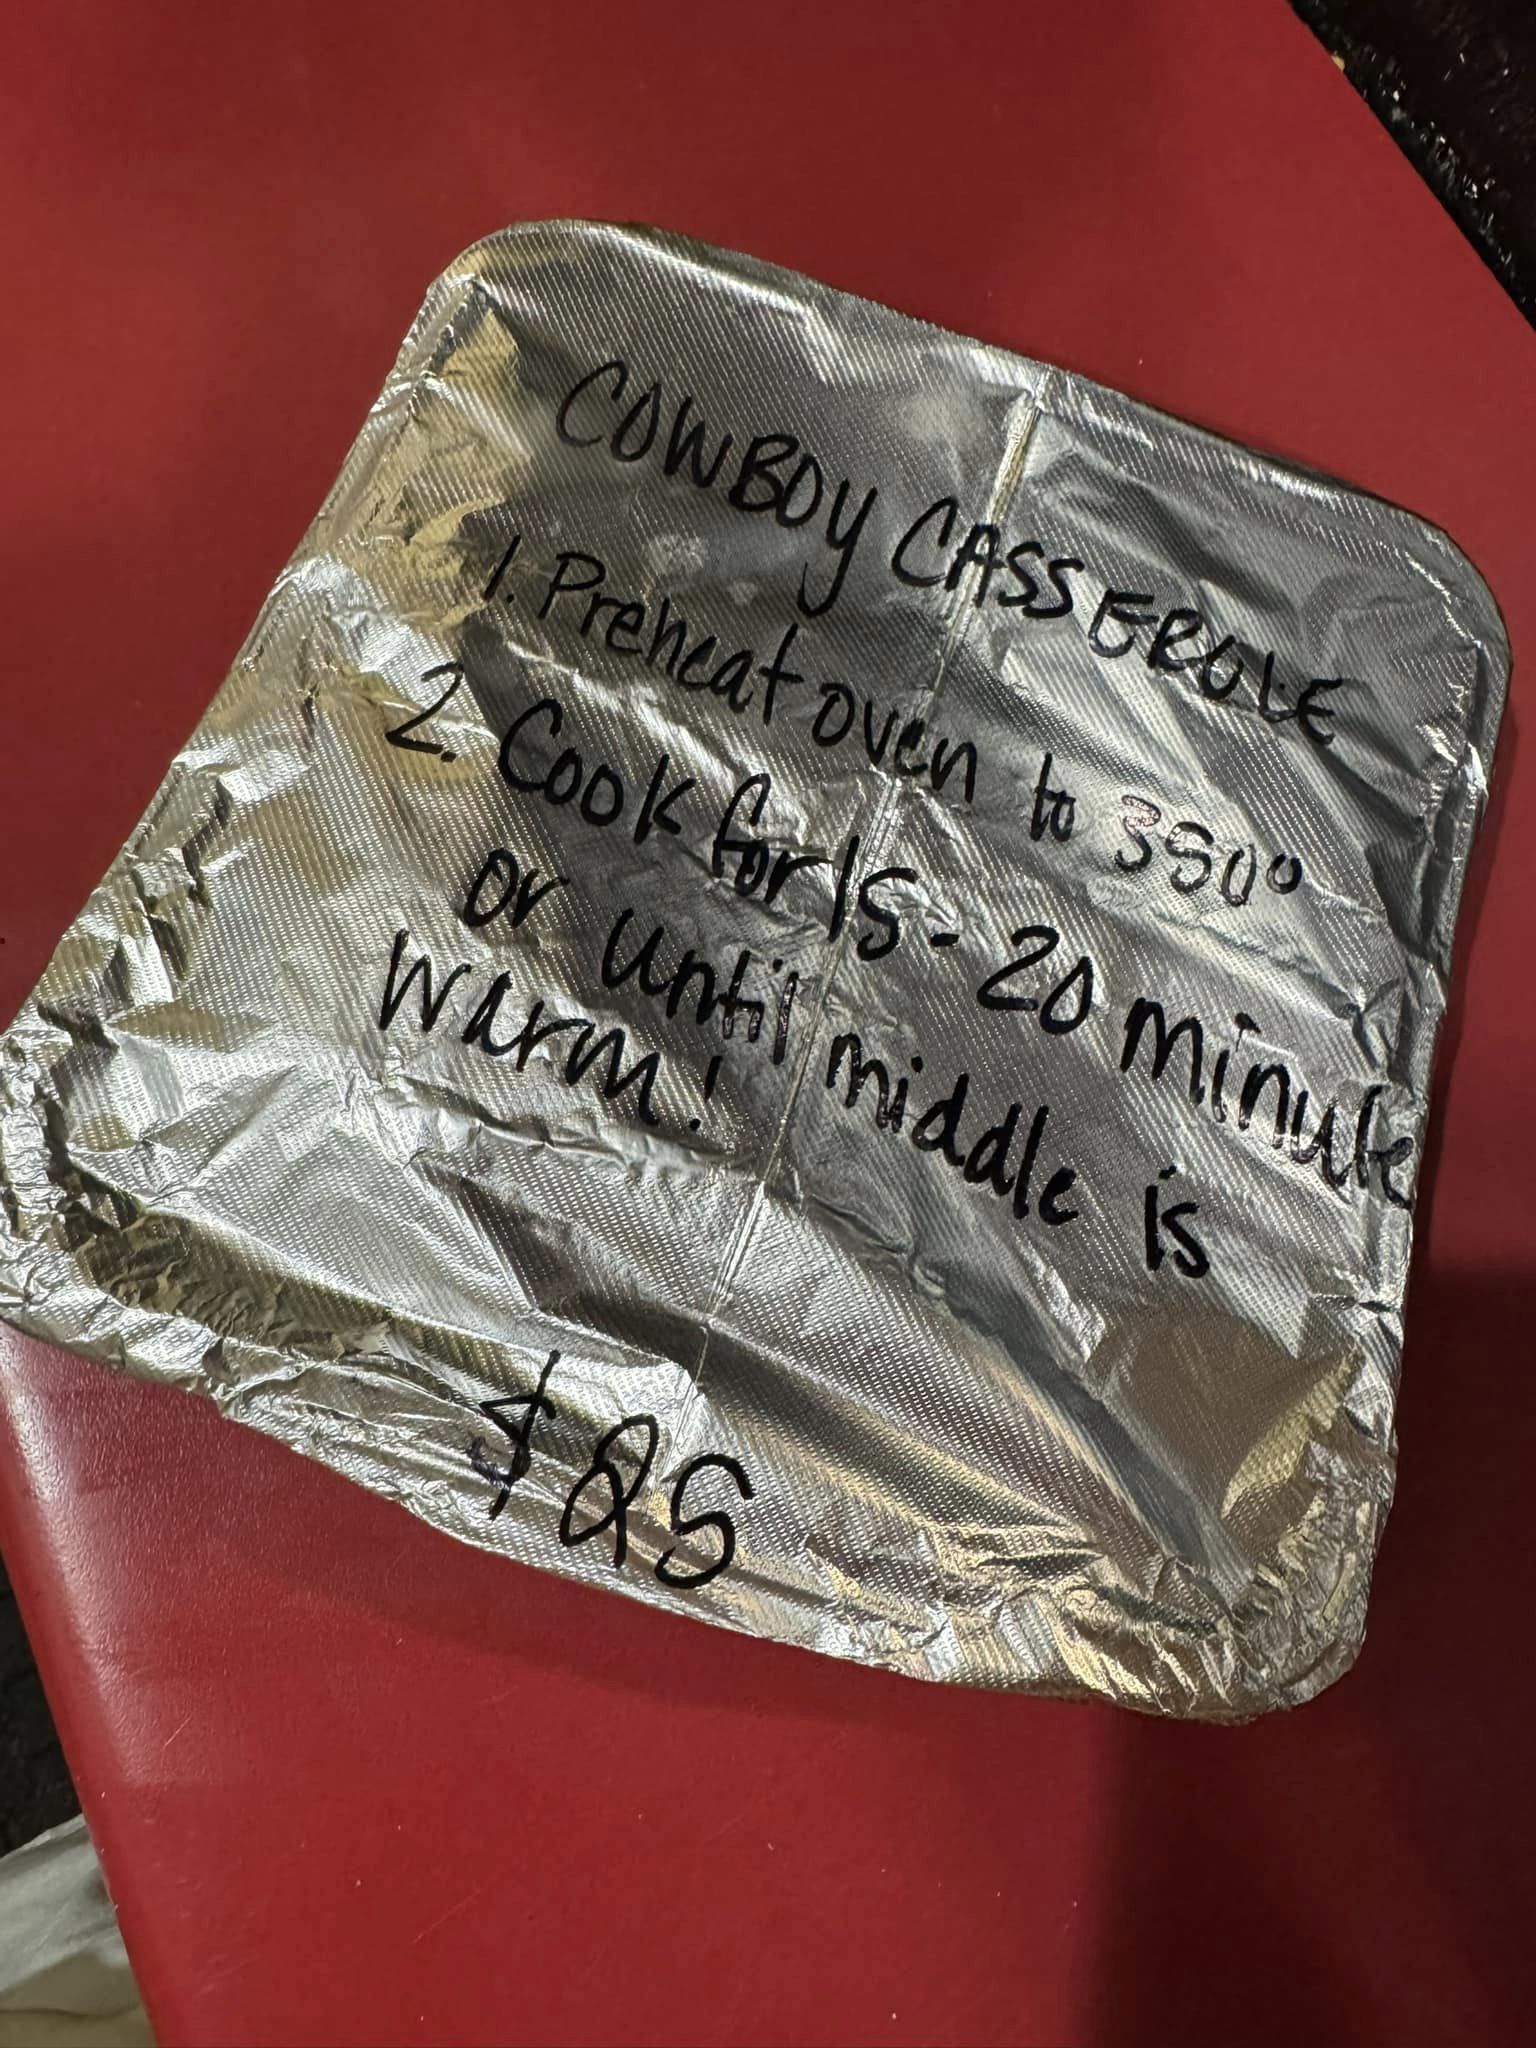 COWBOY CASSEROLE
1. Preheat oven to 350°
2. Cook for 15-20 minute
or until middle is
warm!
$25